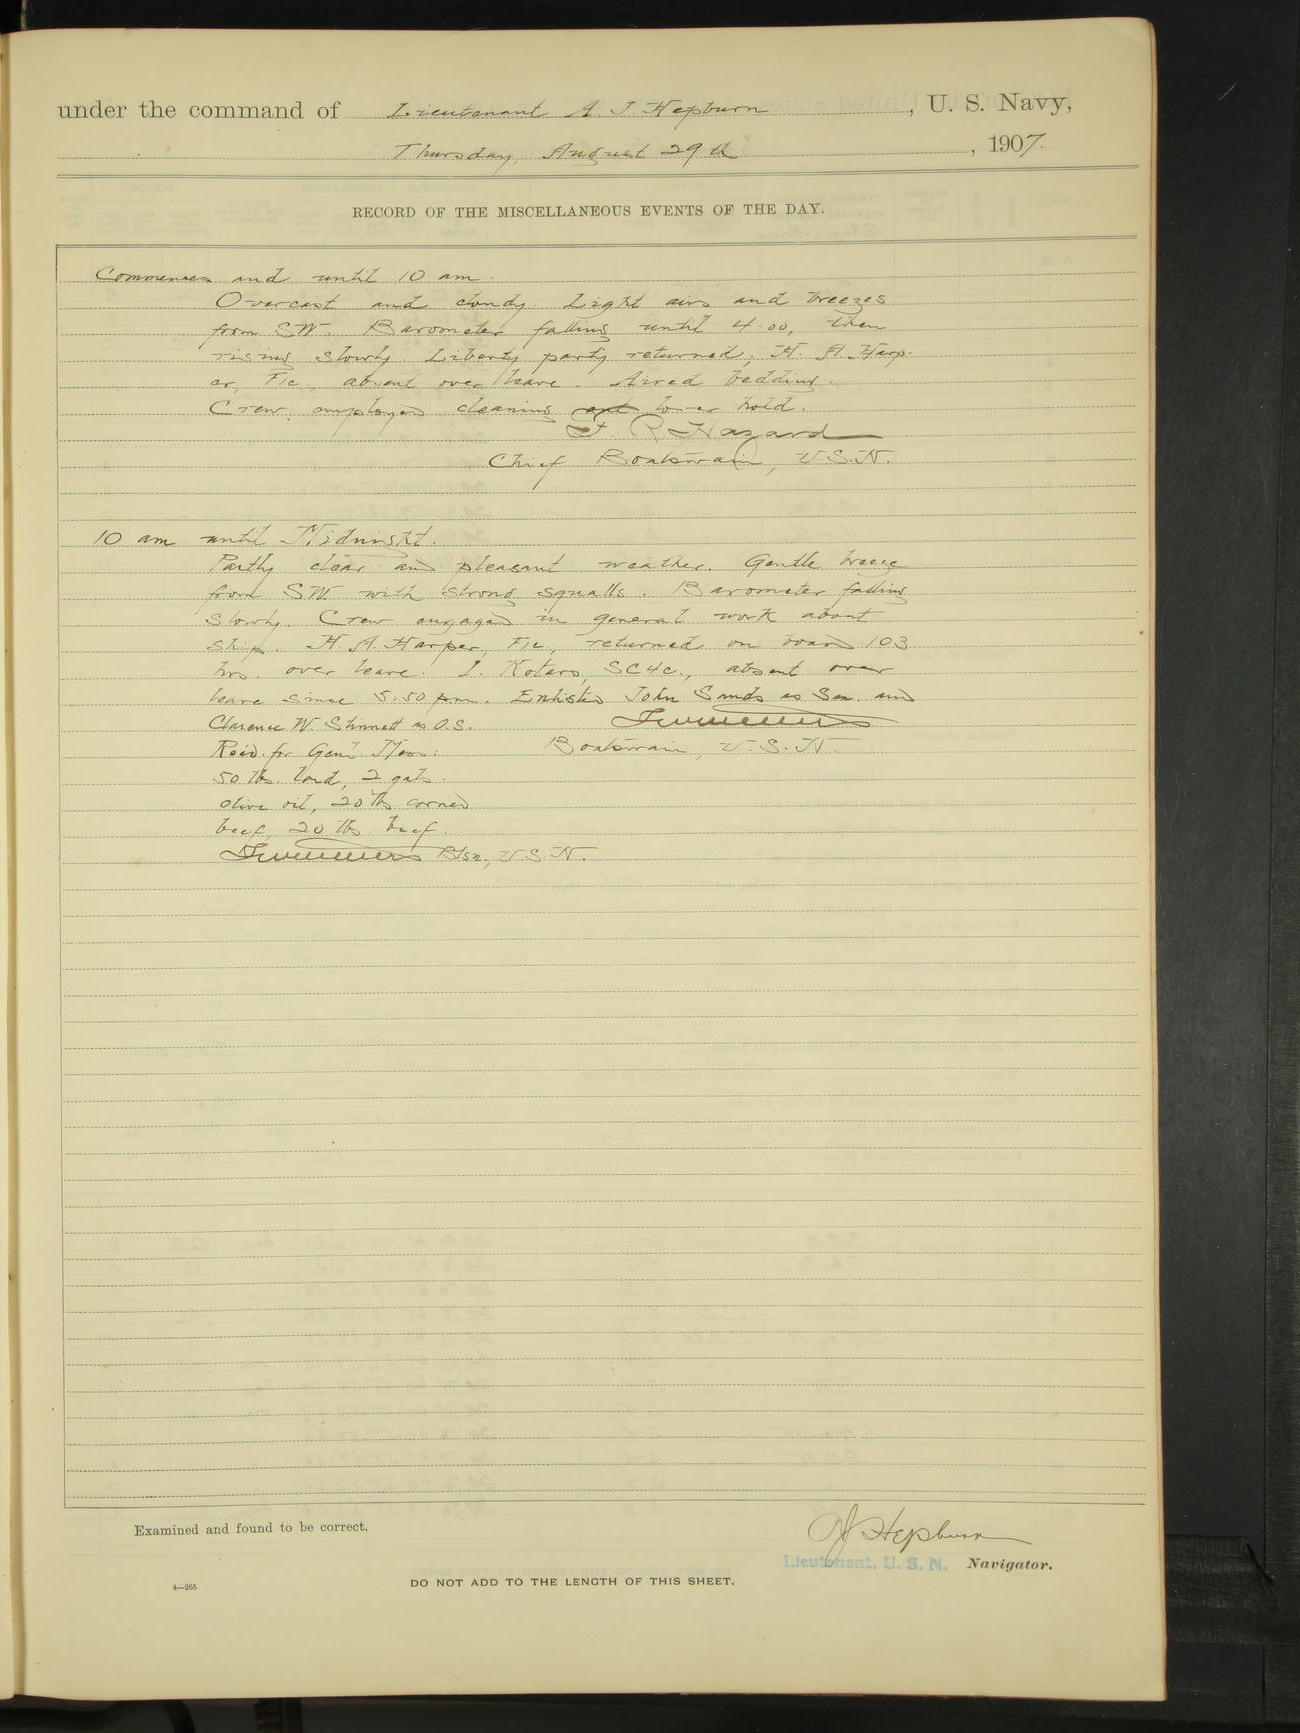 under the command of Lieutenant A. J. Hepburn, U. S. Navy,
Thursday, August 29th, 1907.
RECORD OF THE MISCELLANEOUS EVENTS OF THE DAY.
Commences and until 10 am.
Overcast and cloudy. Light airs and breezes
from SW. Barometer falling until 4:00, then
rising slowly. Liberty party returned; H. A. Harp-
er, F1c., absent over leave. Aired bedding.
Crew employed cleaning lower hold.
F. R. Hazard
Chief Boatswain, U.S.N.
10 am until Midnight.
Partly clear and pleasant weather. Gentle breeze
from SW with strong squalls. Barometer falling
slowly. Crew engaged in general work about
ship. H. A. Harper, F1c, returned on board 103
hrs. over leave. I. Kotaro, SC4c., absent over
leave since 5:50 pm. Enlisted John Sands as Sea. and
Clarence W. Stinnett as O.S.
Boatswain, U.S.N.
Rec'd. for Gen'l Mess:
50 lbs. lard, 2 gals.
olive oil, 20 lbs corned
beef, 20 lbs. beef.
Btsn., U.S.N.
Examined and found to be correct.
AJ Hepburn
Lieutenant, U. S. N. Navigator.
4—265
DO NOT ADD TO THE LENGTH OF THIS SHEET.